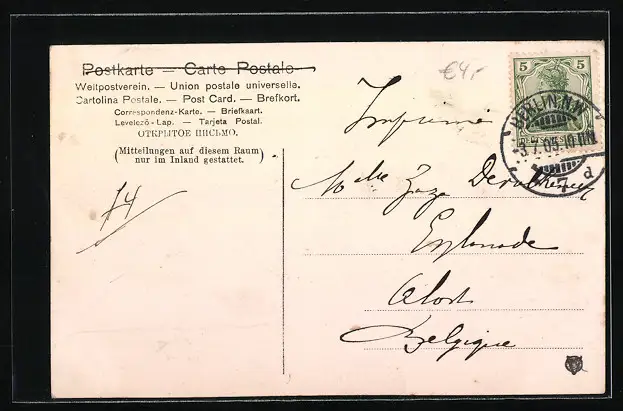 Postkarte — Carte Postale
Weltpostverein. — Union postale universelle.
Cartolina Postale. — Post Card. — Brefkort.
Correspondenz-Karte. — Briefkaart.
Levelező-Lap. — Tarjeta Postal.
ОТКРЫТОЕ ПИСЬМО.
(Mitteilungen auf diesem Raum
nur im Inland gestattet.)
€4,-
5 5
BERLIN N.W.
3.7.05.10
7 d
Imprimé
Mlle Zaza
Esplanade
Alost
Belgique
14